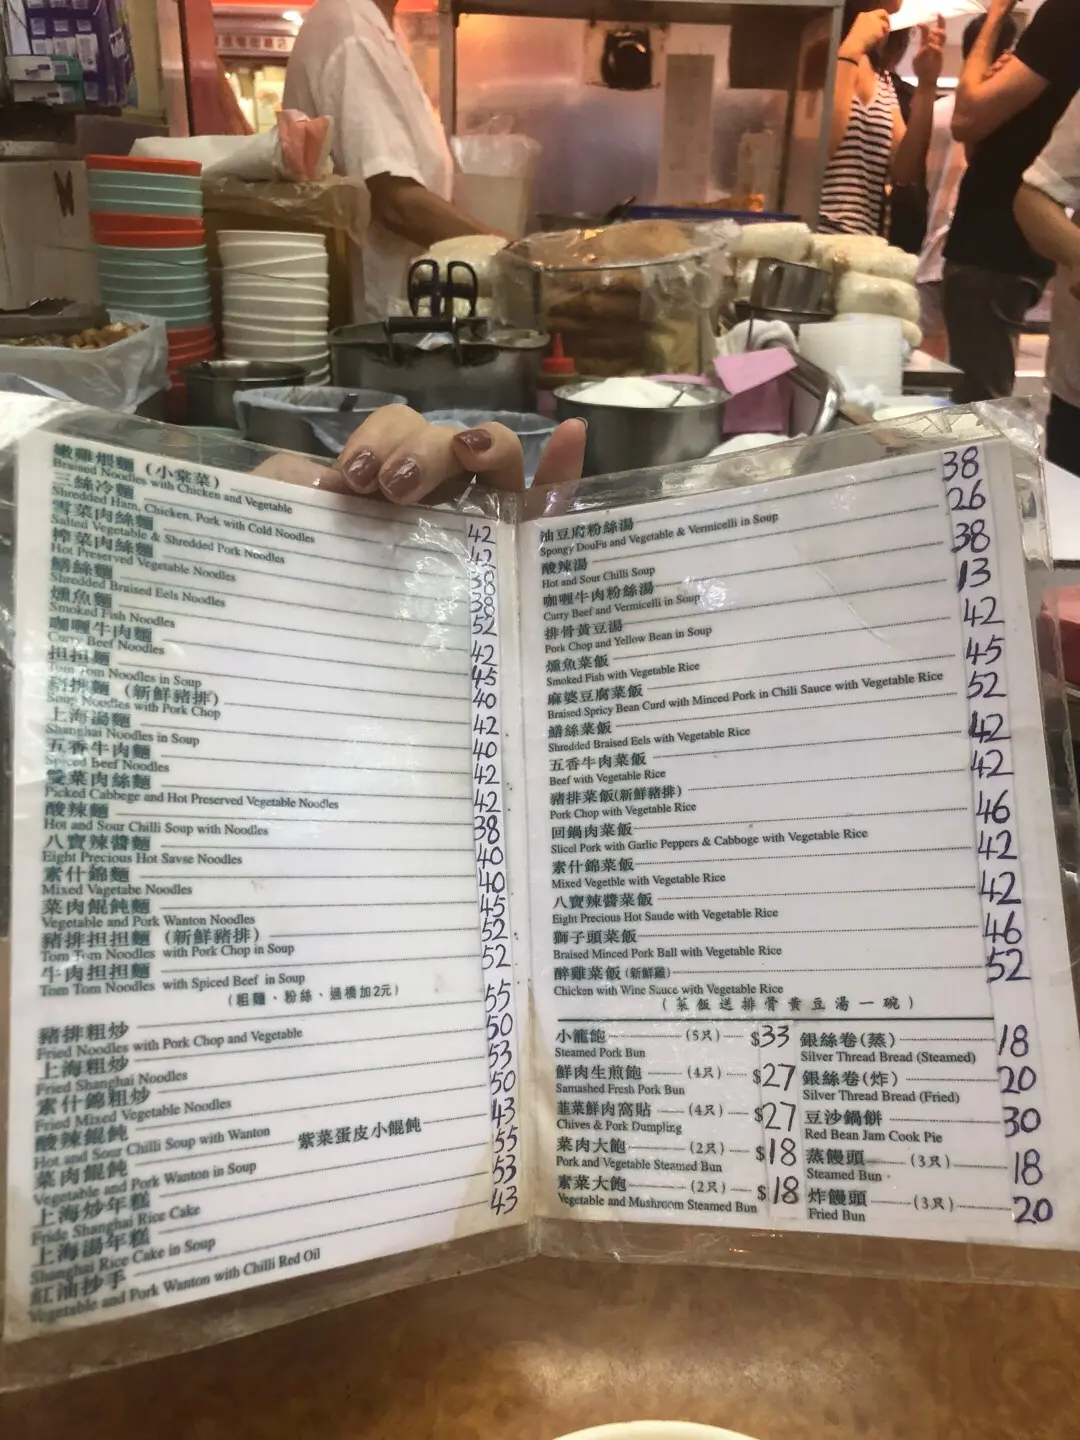 嫩雞煨麵 (小棠菜) 42
Braised Noodles with Chicken and Vegetable
三絲冷麵 42
Shredded Ham, Chicken, Pork with Cold Noodles
雪菜肉絲麵 38
Salted Vegetable & Shredded Pork Noodles
榨菜肉絲麵 38
Hot Preserved Vegetable Noodles
鱔絲麵 52
Shredded Braised Eels Noodles
燻魚麵 42
Smoked Fish Noodles
咖喱牛肉麵 45
Curry Beef Noodles
担担麵 40
Tom Tom Noodles in Soup
豬排麵 (新鮮豬排) 42
Soup Noodles with Pork Chop
上海湯麵 40
Shanghai Noodles in Soup
五香牛肉麵 42
Spiced Beef Noodles
雙菜肉絲麵 42
Picked Cabbege and Hot Preserved Vegetable Noodles
酸辣麵 38
Hot and Sour Chilli Soup with Noodles
八寶辣醬麵 40
Eight Precious Hot Savse Noodles
素什錦麵 40
Mixed Vagetabe Noodles
菜肉餛飩麵 45
Vegetable and Pork Wanton Noodles
豬排担担麵 (新鮮豬排) 52
Tom Tom Noodles with Pork Chop in Soup
牛肉担担麵 52
Tom Tom Noodles with Spiced Beef in Soup
(粗麵、粉絲、過橋加2元)
豬排粗炒 55
Fried Noodles with Pork Chop and Vegetable
上海粗炒 50
Fried Shanghai Noodles
素什錦粗炒 53
Fried Mixed Vegetable Noodles
酸辣餛飩 50
Hot and Sour Chilli Soup with Wanton 紫菜蛋皮小餛飩
菜肉餛飩 43
Vegetable and Pork Wanton in Soup
上海炒年糕 55
Fride Shanghai Rice Cake
上海湯年糕 53
Shanghai Rice Cake in Soup
紅油抄手 43
Vegetable and Pork Wanton with Chilli Red Oil
油豆腐粉絲湯 38
Spongy DouFu and Vegetable & Vermicelli in Soup
酸辣湯 26
Hot and Sour Chilli Soup
咖喱牛肉粉絲湯 38
Curry Beef and Vermicelli in Soup
排骨黃豆湯 13
Pork Chop and Yellow Bean in Soup
燻魚菜飯 42
Smoked Fish with Vegetable Rice
麻婆豆腐菜飯 45
Braised Spricy Bean Curd with Minced Pork in Chili Sauce with Vegetable Rice
鱔絲菜飯 52
Shredded Braised Eels with Vegetable Rice
五香牛肉菜飯 42
Beef with Vegetable Rice
豬排菜飯(新鮮豬排) 42
Pork Chop with Vegetable Rice
回鍋肉菜飯 46
Slicel Pork with Garlic Peppers & Cabboge with Vegetable Rice
素什錦菜飯 42
Mixed Vegetble with Vegetable Rice
八寶辣醬菜飯 42
Eight Precious Hot Saude with Vegetable Rice
獅子頭菜飯 46
Braised Minced Pork Ball with Vegetable Rice
醉雞菜飯(新鮮雞) 52
Chicken with Wine Sauce with Vegetable Rice
(菜飯送排骨黃豆湯一碗)
小籠飽 (5只) $33
Steamed Pork Bun
鮮肉生煎飽 (4只) $27
Samashed Fresh Pork Bun
韮菜鮮肉窩貼 (4只) $27
Chives & Pork Dumpling
菜肉大飽 (2只) $18
Pork and Vegetable Steamed Bun
素菜大飽 (2只) $18
Vegetable and Mushroom Steamed Bun
銀絲卷(蒸) 18
Silver Thread Bread (Steamed)
銀絲卷(炸) 20
Silver Thread Bread (Fried)
豆沙鍋餅 30
Red Bean Jam Cook Pie
蒸饅頭 (3只) 18
Steamed Bun
炸饅頭 (3只) 20
Fried Bun